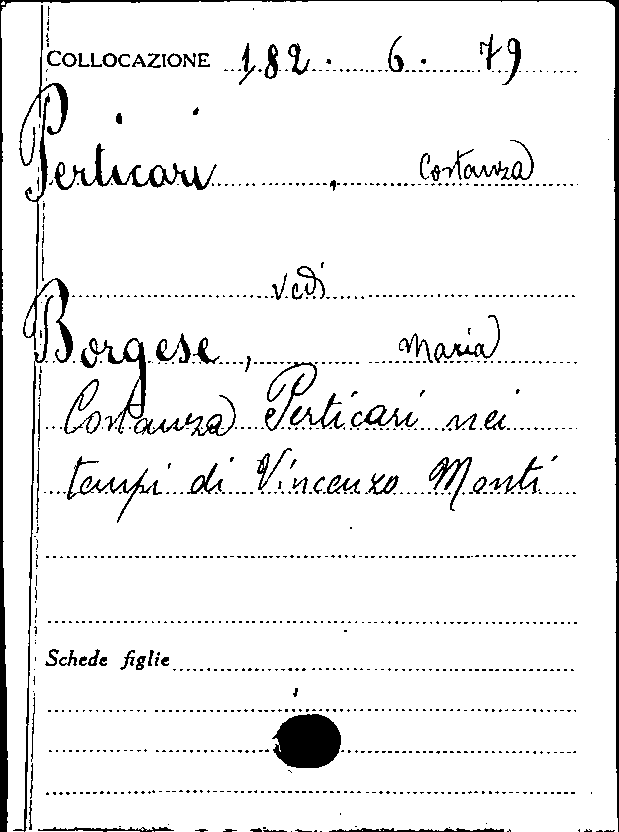 COLLOCAZIONE 182. 6. 79
Perticari, Costanza
vedi
Borgese, Maria
Costanza Perticari nei
tempi di Vincenzo Monti
Schede figlie